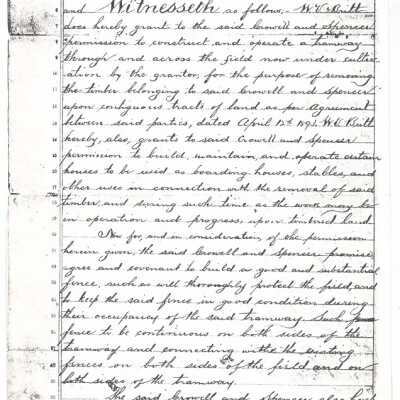 and Witnesseth as follow. W.C. Britt
does hereby grant to the said Crowell and Spencer
permission to construct and operate a tramway
through and across the field now under cultiv-
ation by the grantor, for the purpose of removing
the timber belonging to said Crowell and Spencer
upon contiguous tracts of land as per Agreement
between said parties, dated April 12th 1893. W.C. Britt
hereby, also, grants to said Crowell and Spencer
permission to build, maintain and operate certain
houses to be used as boarding houses, stables, and
other uses in connection with the removal of said
timber, and during such time as the work may be
in operation and progress, upon timbered land.
Now for, and in consideration, of the permission
herein given, the said Crowell and Spencer promise,
agree and covenant to build a good and substantial
fence, such as will thoroughly protect the field, and
to keep the said fence in good condition during
their occupancy of the said tramway. Such
fence to be continuous on both sides of the
tramway and connecting with the existing
fences on both sides of the field and on
both sides of the tramway.
The said Crowell and Spencer also